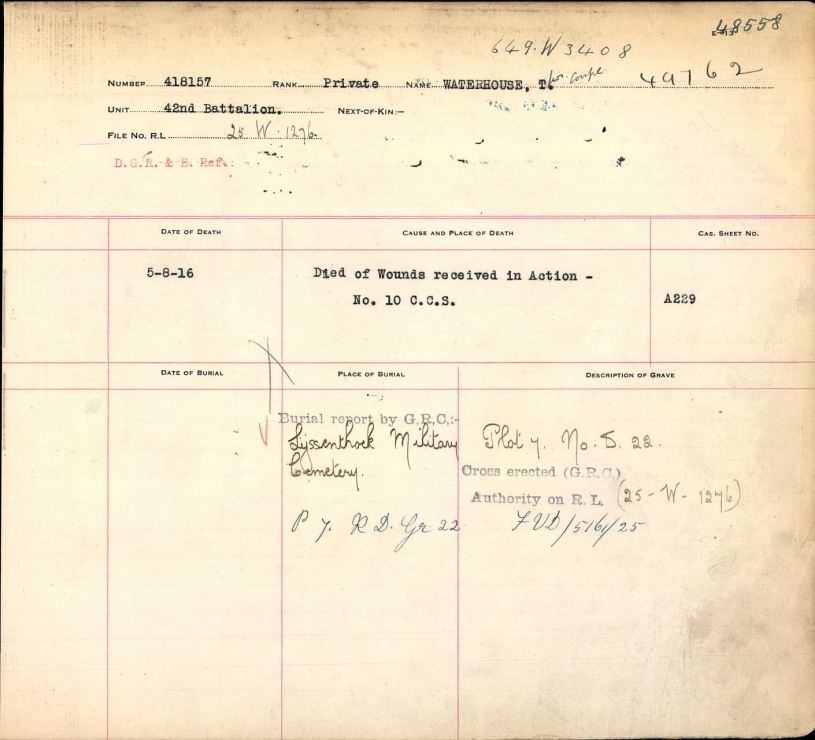 48558
649-W 3408
49762
NUMBER 418157 RANK Private NAME WATERHOUSE, T.
UNIT 42nd Battalion. NEXT-OF-KIN:—
FILE NO. R.L. 25 W-1276.
D.G.R. & E. Ref.:
DATE OF DEATH CAUSE AND PLACE OF DEATH CAS. SHEET NO.
5-8-16 Died of Wounds received in Action -
No. 10 C.C.S. A229
DATE OF BURIAL PLACE OF BURIAL DESCRIPTION OF GRAVE
Burial report by G.R.C.:-
Lijssenthoek Military Plot 7. No. D. 22.
Cemetery. Cross erected (G.R.C.)
Authority on R. L. (25-W-1276)
P 7. R D. Gr 22